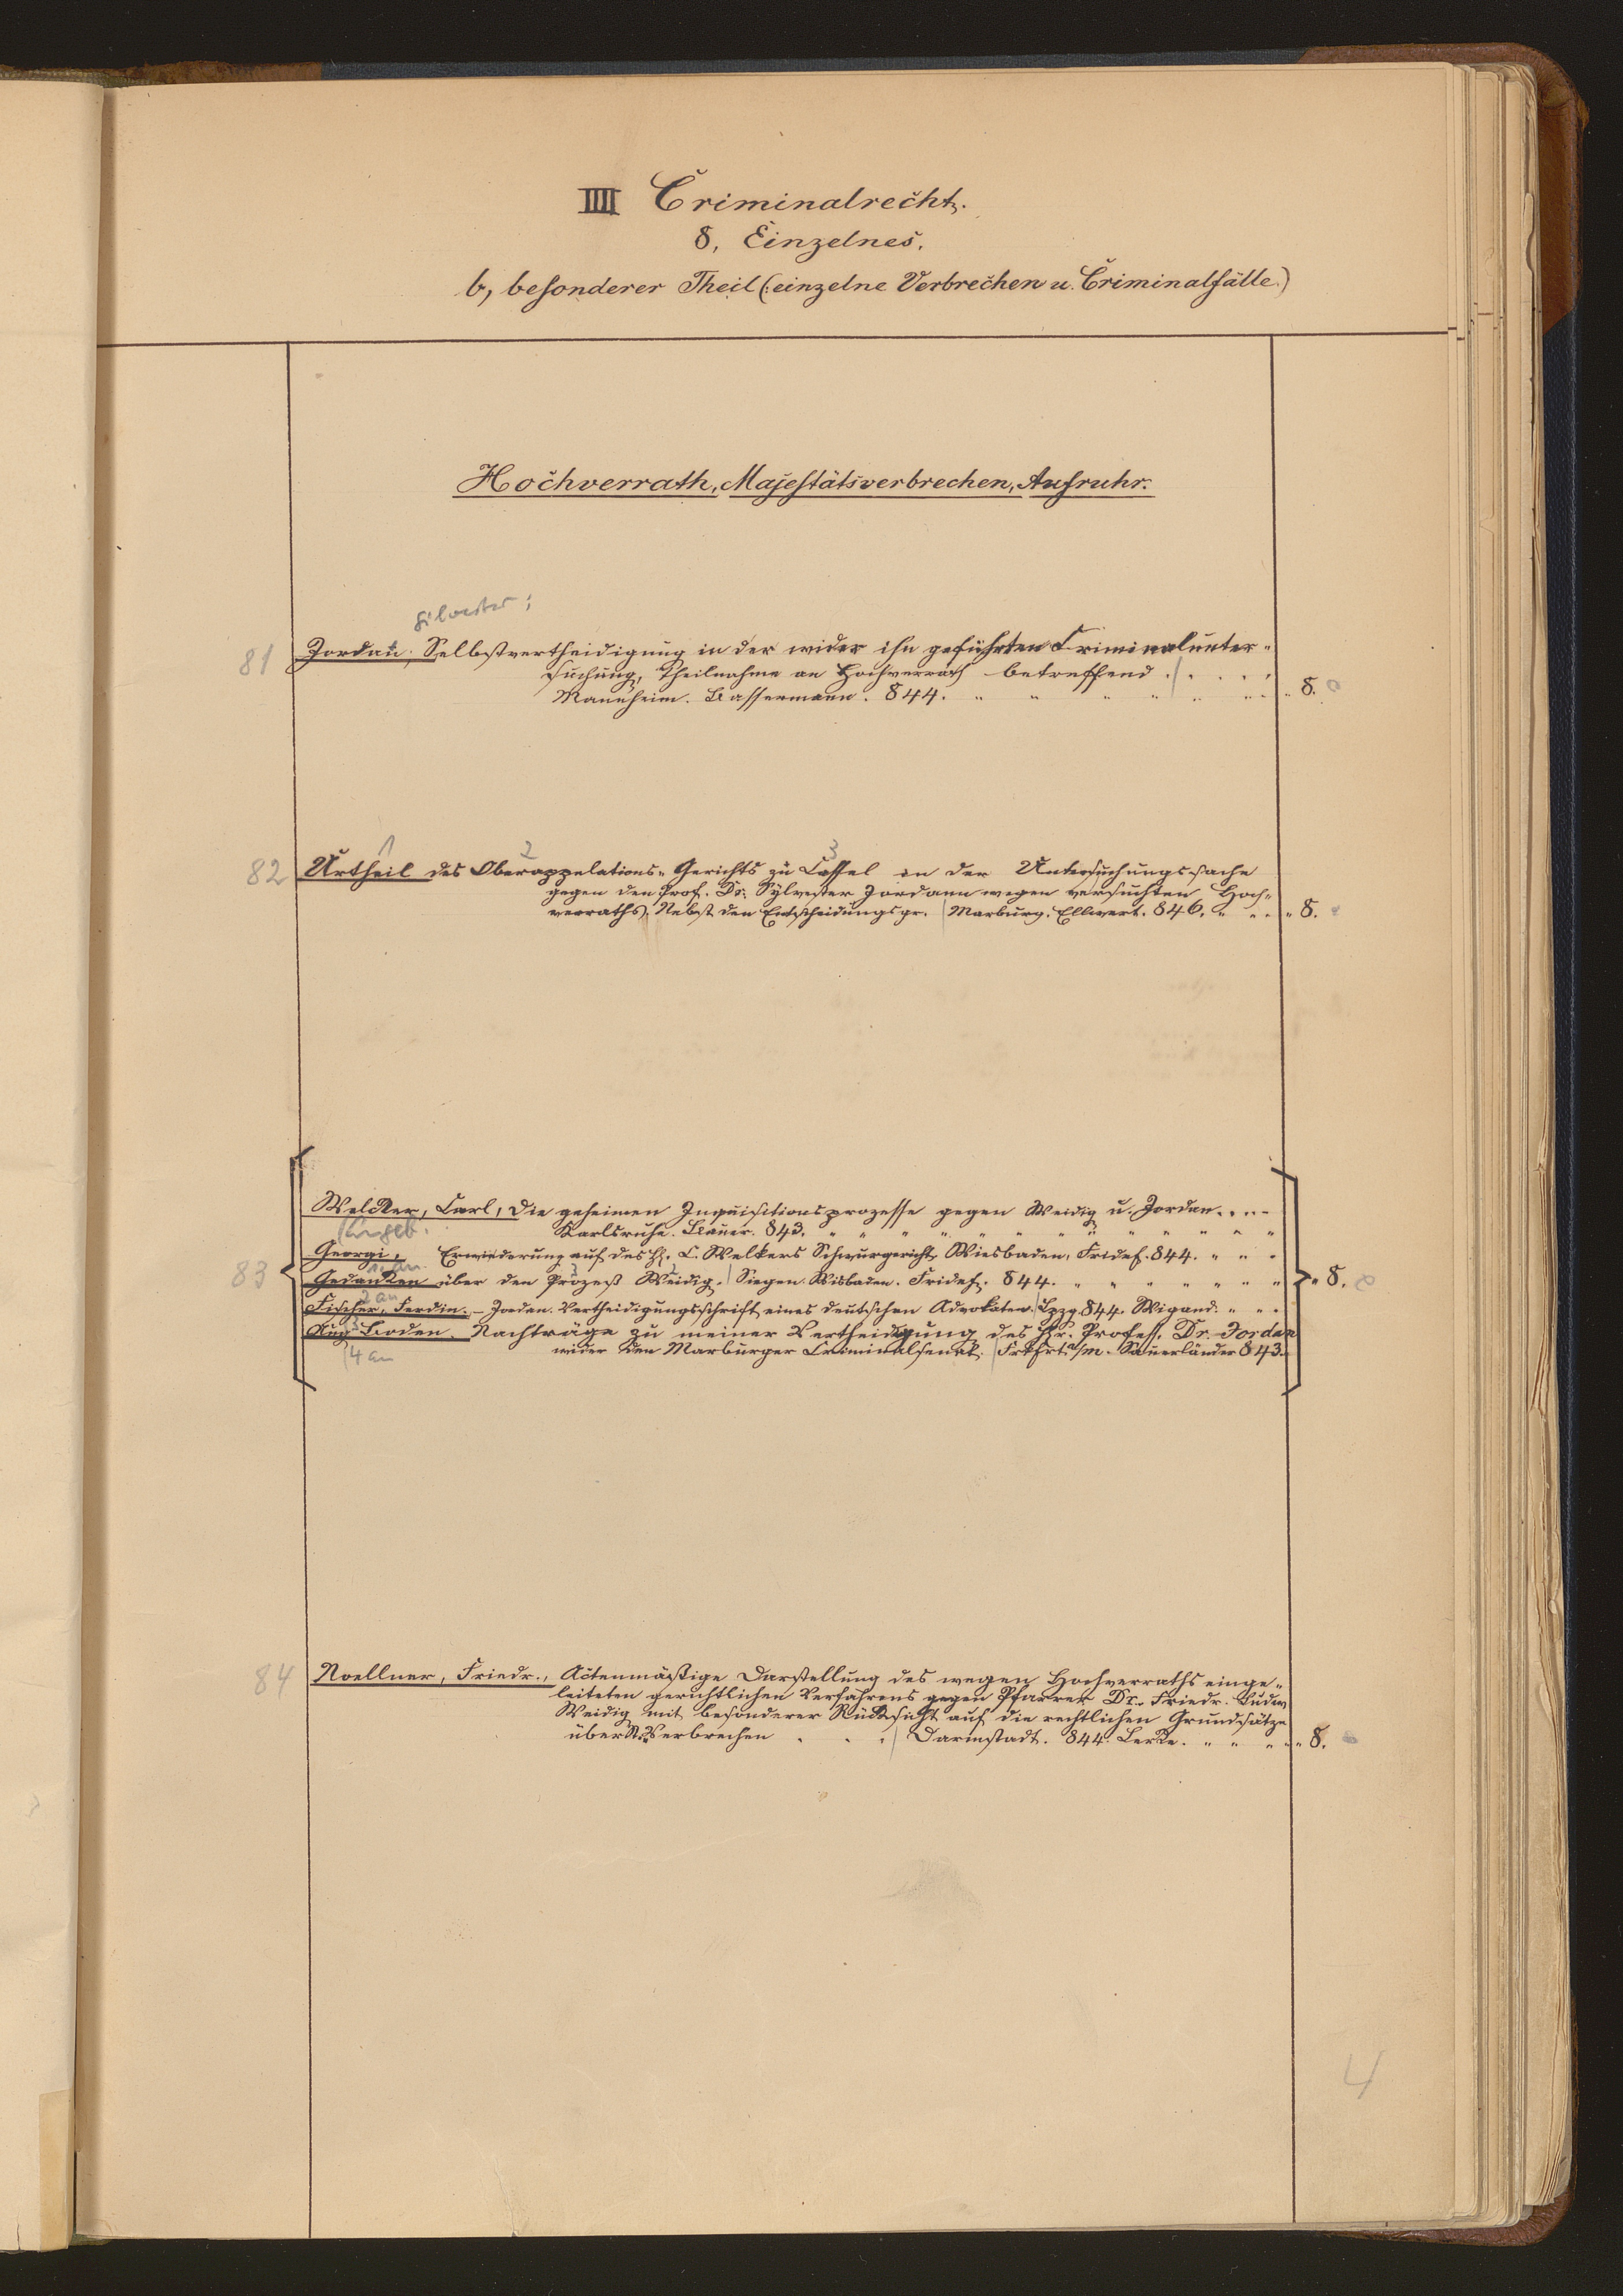 IIII Criminalrecht.
8, Einzelnes.
b, besonderer Theil (:einzelne Verbrechen u. Criminalfälle.)
Hochverrath, Majestätsverbrechen, Aufruhr.
Silvester;
81 Jordan. Selbstvertheidigung in der wider ihn geführten Criminalunter-
suchung, Theilnahme an Hochverrath betreffend.
Mannheim. Bassermann. 844. " " " " " " " 8.
1 2 3
82 Urtheil des Oberappelations-Gerichts zu Cassel in der Untersuchungssache
gegen den Prof. Dr. Sylvester Jordann wegen versuchten Hoch-
verraths. Nebst den Entscheidungsgr. | Marburg. Ellwert. 846. " " " 8.
Welcker, Carl, Die geheimen Inquisitionsprozesse gegen Weidig u. Jordan.
Karlsruhe. Braun. 843. " " " " " " " " " "
Georgi, Erwiederung auf des H. C. Welkers Schwurgericht, Wiesbaden, Fridef. 844. " " "
1. an.
83 Gedanken über den Prozeß Weidig. | Siegen. Wisbaden. Fridef. 844. " " " " " " " 8.
2 an
Fischer, Ferdin. – Jordan. Vertheidigungsschrift eines deutschen Advokaten. | Lpzg. 844. Wigand. " " "
3
Aug. Boden Nachträge zu meiner Vertheidigung des Hr. Profess. Dr. Jordan
4 an
wider den Marburger Criminalsenat. | Frkfrt a/m. Sauerländer 843.
84 Noellner, Friedr., Actenmäßige Darstellung des wegen Hochverraths einge-
leiteten gerichtlichen Verfahrens gegen Pfarrer Dr. Friedr. Ludw.
Weidig mit besonderer Rücksicht auf die rechtlichen Grundsätze
über Verbrechen | Darmstadt. 844. Leske. " " " " 8.
4